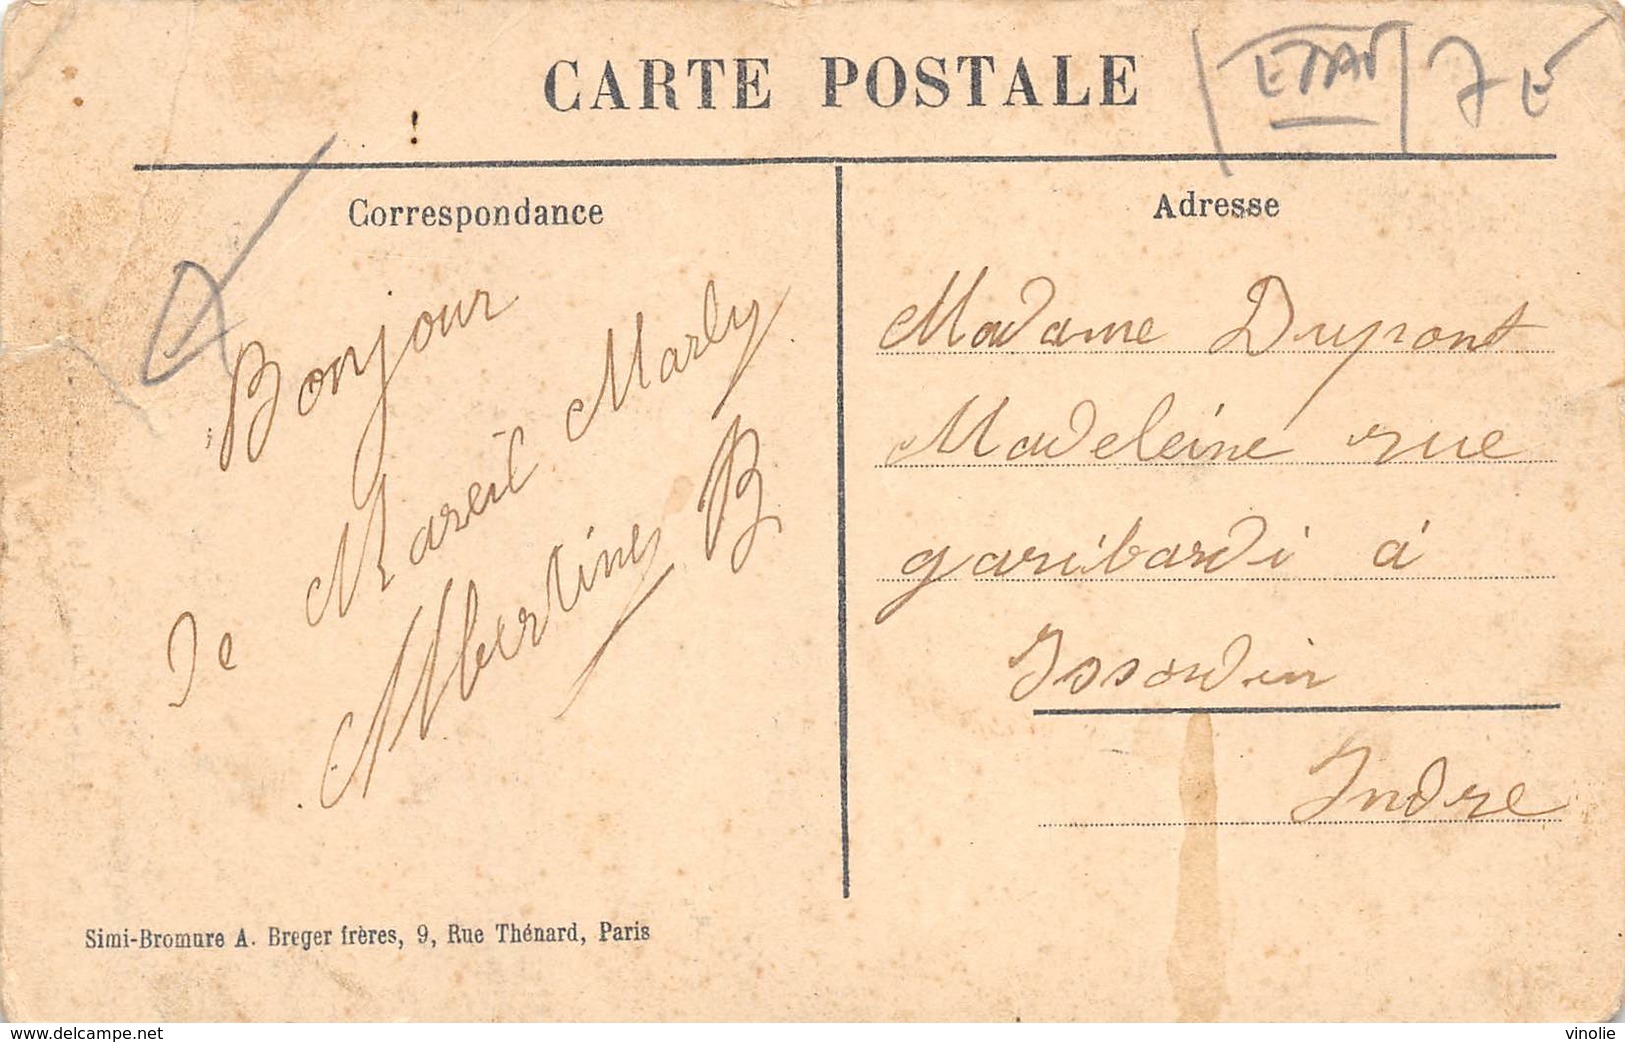 CARTE POSTALE
ETAT 7 E
!
Correspondance
Bonjour
De Mareil Marly
Albertine B
Simi-Bromure A. Breger frères, 9, Rue Thénard, Paris
Adresse
Madame Dupont
Madeleine rue
garibardi à
Issoudin
Indre
www.delcampe.net
vinolie